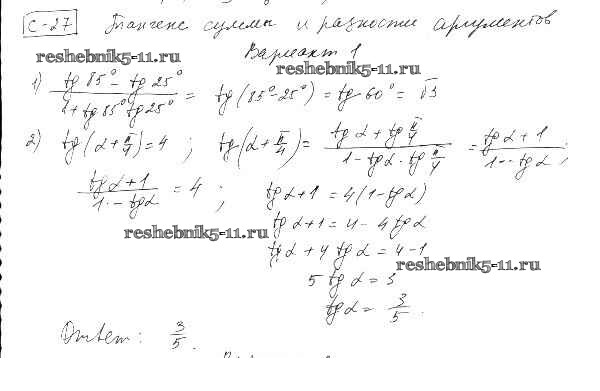 С-27 Тангенс суммы и разности аргументов
Вариант 1
reshebnik5-11.ru
reshebnik5-11.ru
1) (tg 85° - tg 25°)/(1 + tg 85° tg 25°) = tg(85° - 25°) = tg 60° = √3
2) tg(α + π/4) = 4 ; tg(α + π/4) = (tg α + tg π/4)/(1 - tg α · tg π/4) = (tg α + 1)/(1 - tg α) ;
(tg α + 1)/(1 - tg α) = 4 ; tg α + 1 = 4(1 - tg α)
tg α + 1 = 4 - 4 tg α
reshebnik5-11.ru
tg α + 4 tg α = 4 - 1
reshebnik5-11.ru
5 tg α = 3
tg α = 3/5 .
Ответ: 3/5 .